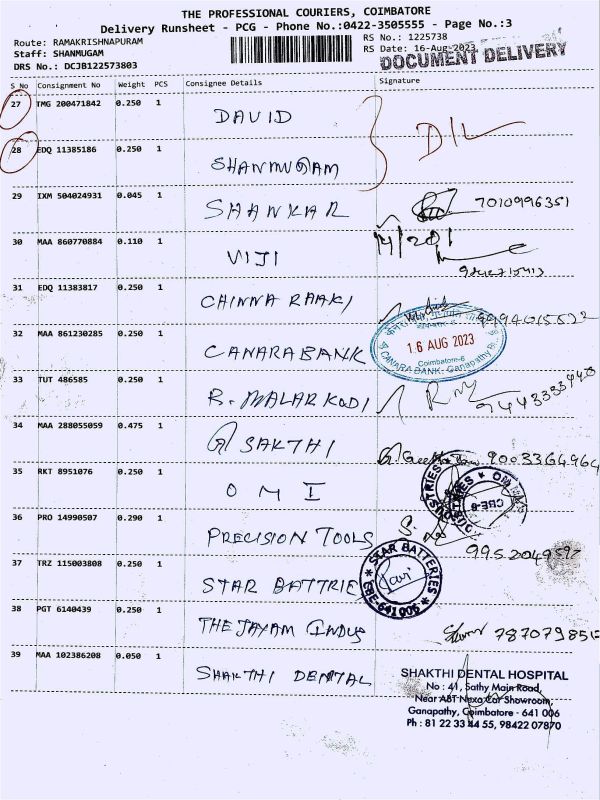 THE PROFESSIONAL COURIERS, COIMBATORE
Delivery Runsheet - PCG - Phone No.:0422-3505555 - Page No.:3
Route: RAMAKRISHNAPURAM
RS No.: 1225738
Staff: SHANMUGAM
RS Date: 16-Aug-2023
DRS No.: DCJB122573803
DOCUMENT DELIVERY
S No Consignment No Weight PCS Consignee Details Signature
27 TMG 200471842 0.250 1 DAVID
D/L
28 EDQ 11385186 0.250 1 SHANMUGAM
29 IXM 504024931 0.045 1 SHANKAR 7010996351
30 MAA 860770884 0.110 1 VIJI
31 EDQ 11383817 0.250 1 CHINNA RAAKI
32 MAA 861230285 0.250 1 CANARA BANK
16 AUG 2023
Coimbatore-6
CANARA BANK, Ganapathy
33 TUT 486585 0.250 1 R. MALARKODI
34 MAA 288055059 0.475 1 G SAKTHI 9003364964
35 RKT 8951076 0.250 1 OMI
36 PRO 14990507 0.290 1 PRECISION TOOLS
37 TRZ 115003808 0.250 1 STAR BATTRIE
STAR BATTERIES
CBE-641 006
38 PGT 6140439 0.250 1 THE JAYAM INDUS
39 MAA 102386208 0.050 1 SHAKTHI DENTAL
SHAKTHI DENTAL HOSPITAL
No : 41, Sathy Main Road,
Near ABT Nexa Car Showroom,
Ganapathy, Coimbatore - 641 006
Ph : 81 22 33 44 55, 98422 07870